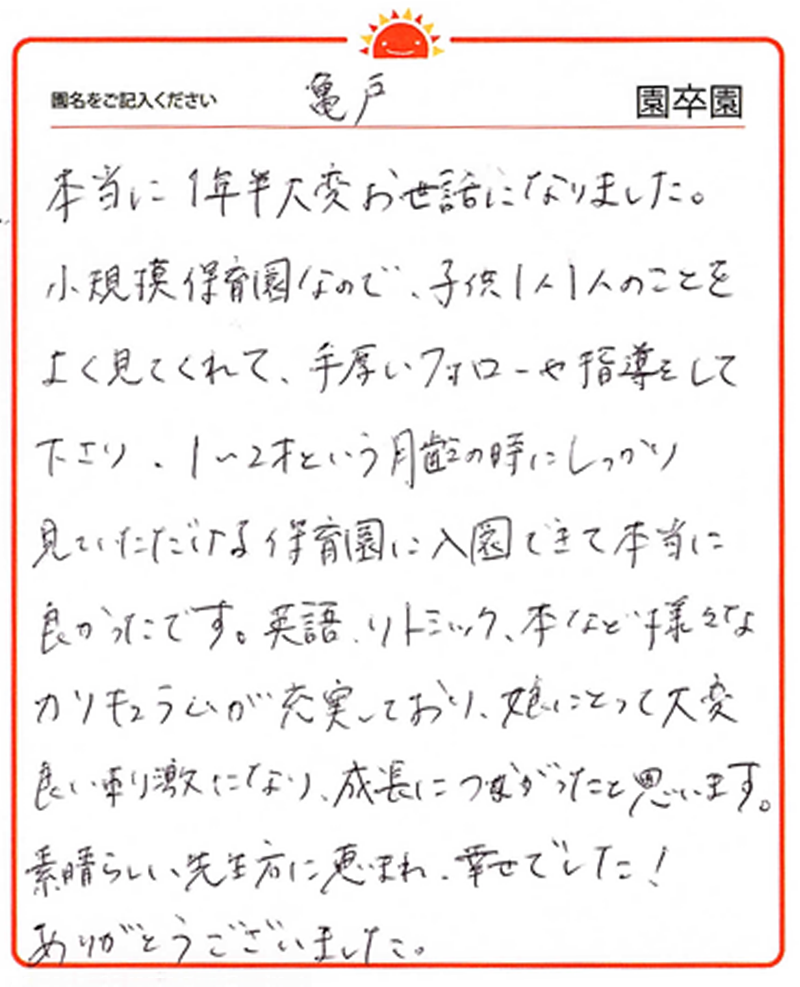 園名をご記入ください 亀戸 園卒園
本当に1年半大変お世話になりました。
小規模保育園なので、子供1人1人のことを
よく見てくれて、手厚いフォローや指導をして
下さり、1〜2才という月齢の時にしっかり
見ていただける保育園に入園できて本当に
良かったです。英語、リトミック、本など様々な
カリキュラムが充実しており、娘にとって大変
良い刺激になり、成長につながったと思います。
素晴らしい先生方に恵まれ、幸せでした!
ありがとうございました。